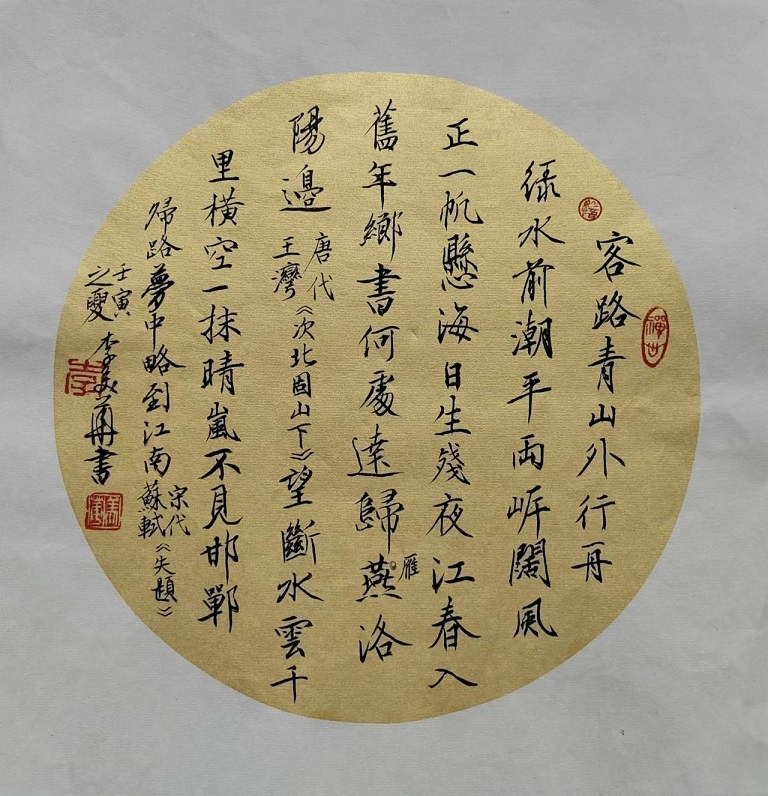 客路青山外行舟
緑水前潮平兩岸闊風
正一帆懸海日生殘夜江春入
舊年鄉書何處達歸燕洛
雁
陽邊
唐代
王灣
《次北固山下》望斷水雲千
里橫空一抹晴嵐不見邯鄲
歸路夢中略到江南
宋代
蘇軾
《失題》
壬寅
之夏
李書
李